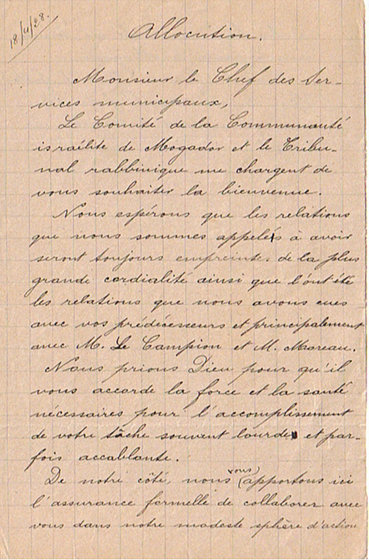 18/4/28.
Allocution.
Monsieur le Chef des Ser-
vices municipaux,
Le Comité de la Communauté
israélite de Mogador et le Tribu-
nal rabbinique me chargent de
vous souhaiter la bienvenue.
Nous espérons que les relations
que nous sommes appelés à avoir
seront toujours empreintes de la plus
grande cordialité ainsi que l'ont été
les relations que nous avons eues
avec vos prédécesseurs et principalement
avec M. Le Campion et M. Moreau.
Nous prions Dieu pour qu'il
vous accorde la force et la santé
nécessaires pour l'accomplissement
de votre tâche souvent lourde et par-
fois accablante.
De notre côté, nous vous apportons ici
l'assurance formelle de collaborer avec
vous dans notre modeste sphère d'action